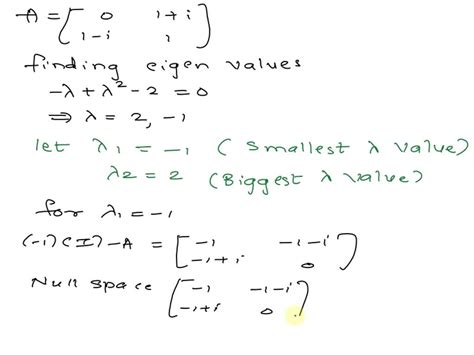 A = [ 0 1+i
1-i 1 ]
finding eigen values
-λ + λ² - 2 = 0
⇒ λ = 2, -1
let λ1 = -1 ( smallest λ value)
λ2 = 2 (Biggest λ value)
for λ1 = -1
(-1)(I) - A = [ -1 -1-i
-1+i 0 ]
Null space [ -1 -1-i
-1+i 0 ]